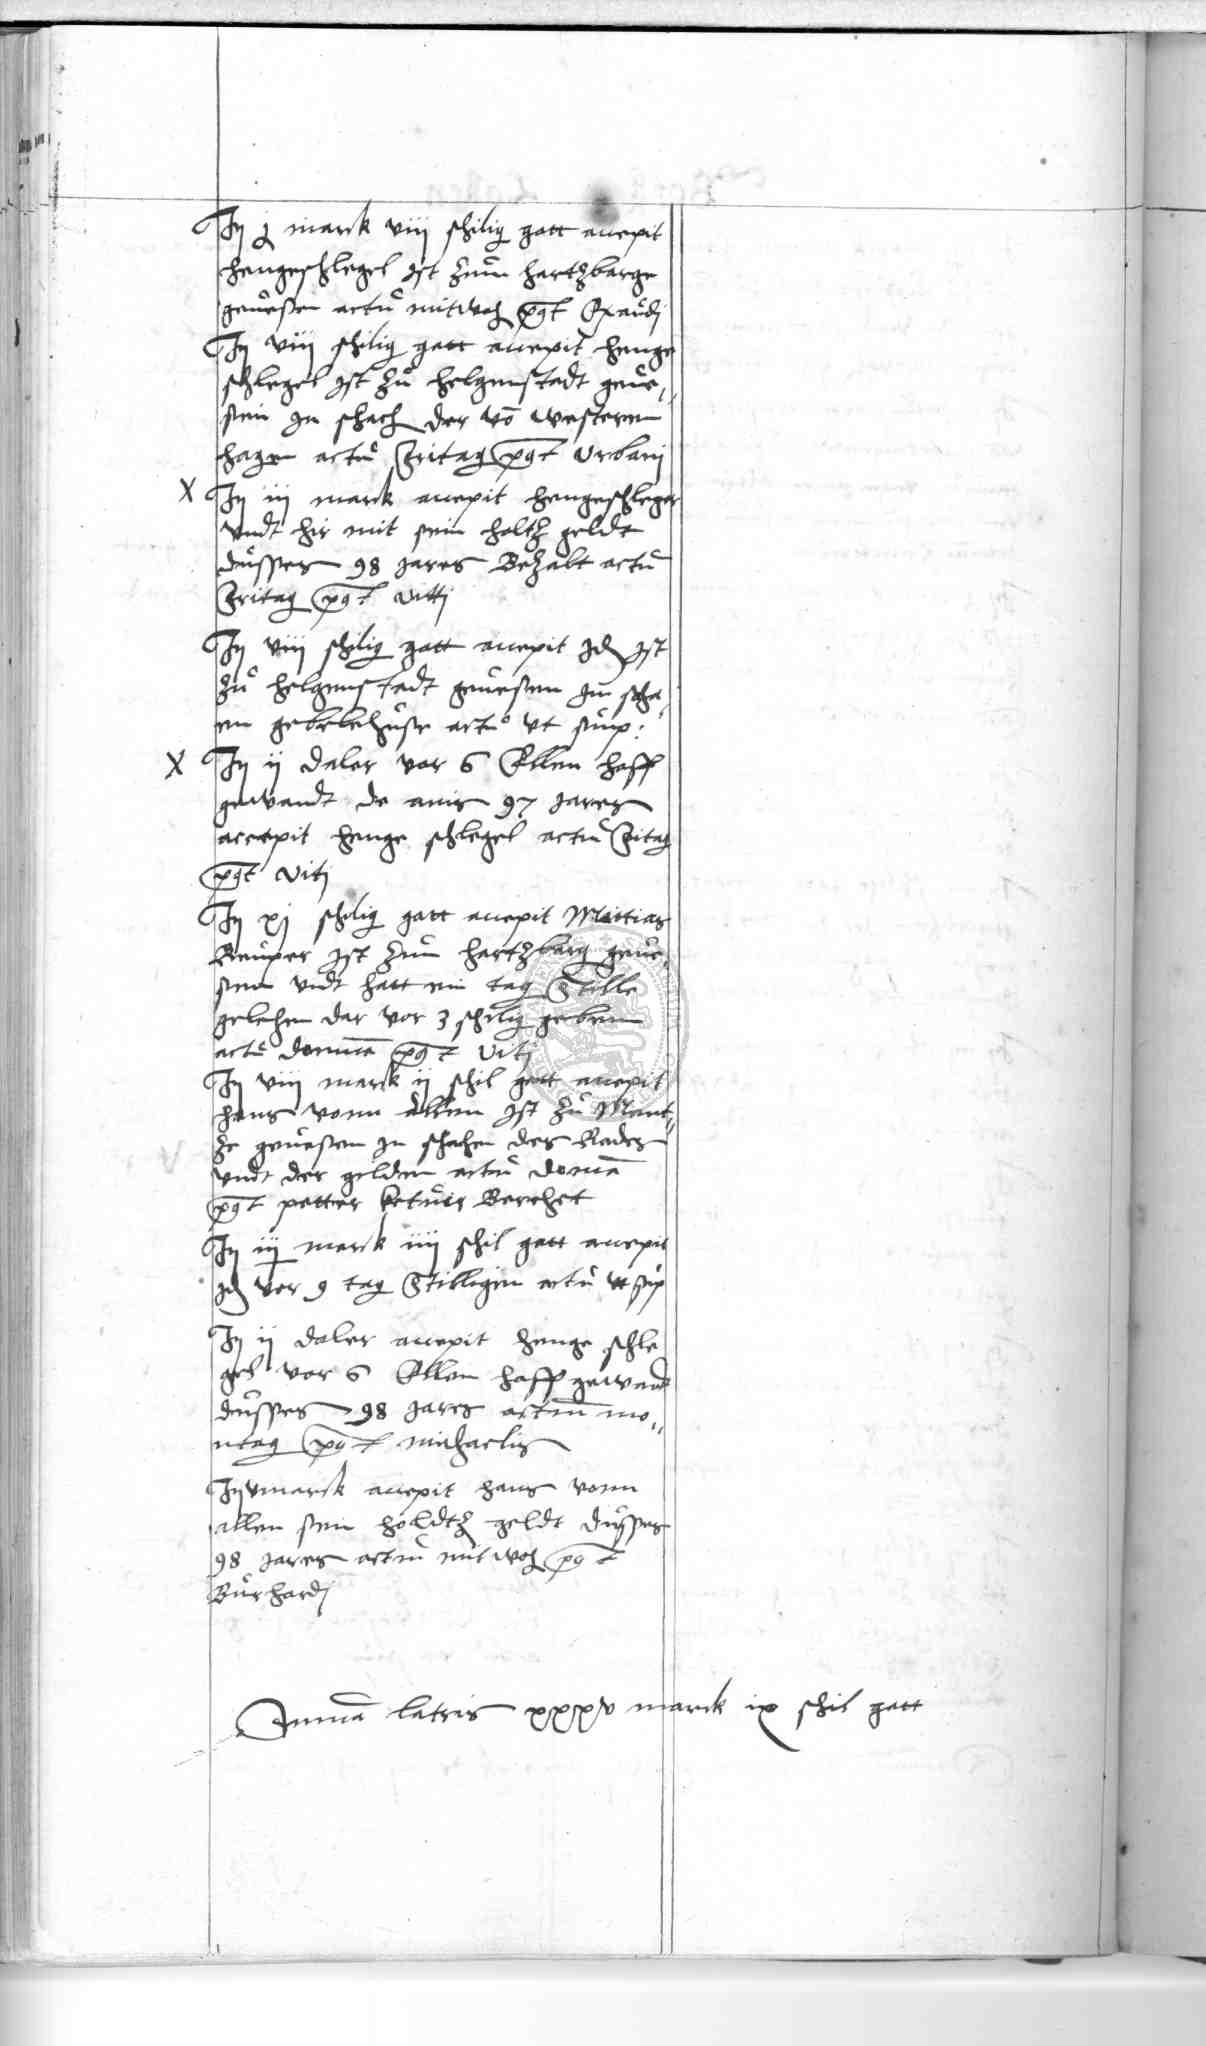 Jtj j marck viij schilig gott accepit
hengeschlegel jst zum hartzbarge
gewesen actu mitwoch post Exaudj
Jtj viij schilig gott accepit henge
schlegel jst zu helgenstadt gewe„
sen jn schach der vo westeren
hagen actu fritag post Vrbanj
X Jtj iij marck accepit hengeschleger
vndt hir mit sein holtz geldt
dusses 98 jares Bezalt actu
fritag post vittj
Jtj viij schilig gott accepit jd jst
zu helgenstadt gewesen jm scha
en actu ut sup:
X Jtj ij daler vor 6 Ellen hoff
gewandt de anis 97 jares
accepit henge schlegel actu fritag
post vitj
Jtj xj schilig gott accepit Mattias
Reuper jst zum hartzbarg gewe„
sen vndt hatt ein tag stille
gelehen dar vor 3 schilig geben
actu domica post vitj
Jtj viij marck ij schil gott accepit
hans vonn allen jst zu Ment„
ze gewesen jn schachen des Rades
vndt der gilden actu domica
post petter ketten
Jtj iij marck iiij schil gott accepit
jd vor 9 tag stilligen actu ut sup
Jtj ij daler accepit henge schle
gel vor 6 Ellen hoff gewandt
dusses 98 jares actum mo„
ntag post michaelis
Jtj v marck accepit hans vonn
allen sein holdtz geldt dusses
98 jares actu mitwoch post
Burhardj
Suma latris xxxv marck ix schil gott